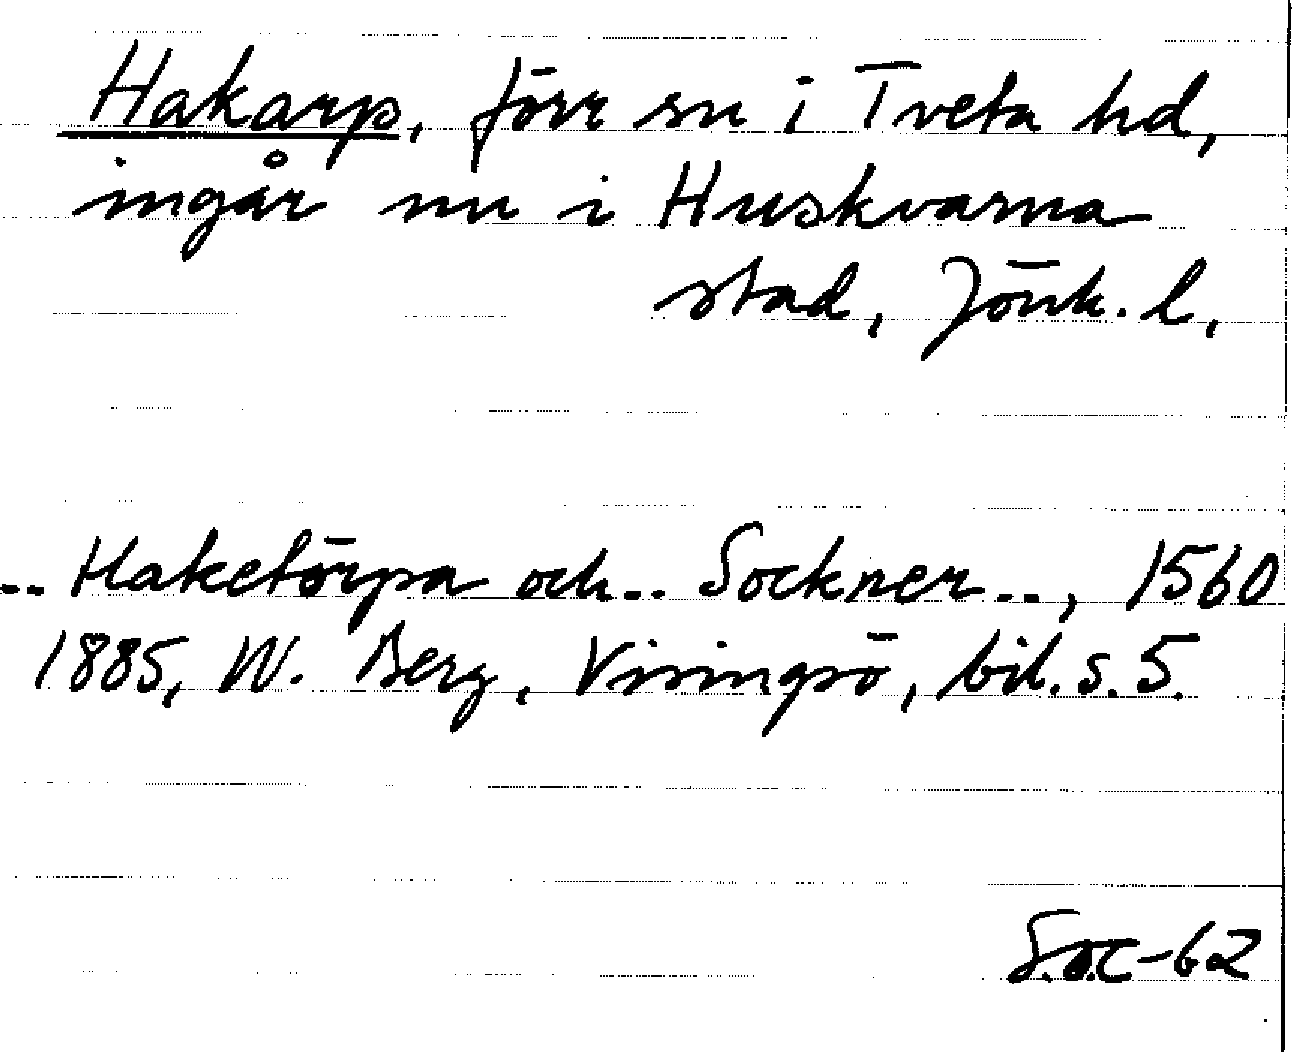 Hakarp, förr sn i Tveta hd,
ingår nu i Huskvarna
stad, Jönk. l.
.. Haketörpa och .. Sockner .., 1560
1885, W. Berg, Visingsö, bil. s. 5.
S.O.C-62